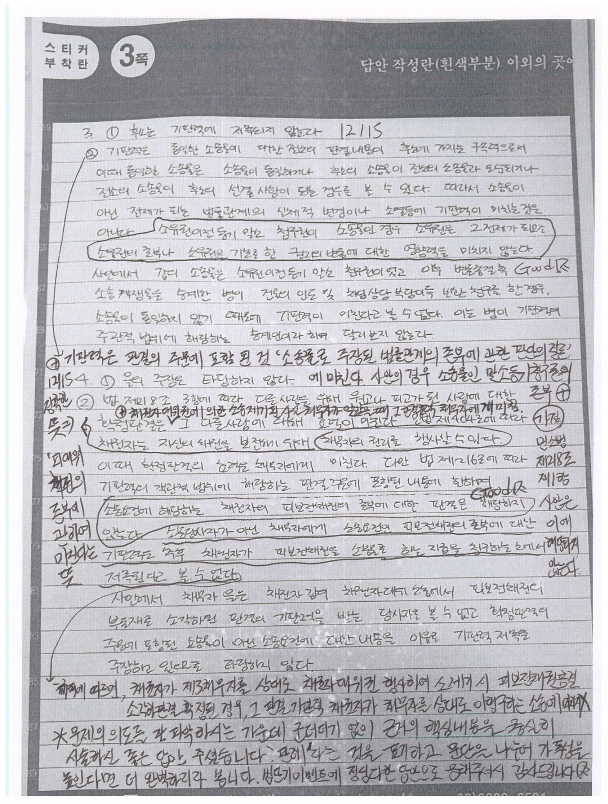 스티커
부착란
3쪽
답안 작성란(흰색부분) 이외의 곳에
3 ① 후소는 기판력에 저촉되지 않는다 12/15
② 기판력은 동일한 소송물에 대한 전소의 판결내용이 후소에 가지는 구속력으로서
이때 동일한 소송물은 소송물이 동일하거나 후소의 소송물이 전소의 소송물과 모순되거나
전소의 소송물이 후소의 선결 사항이 되는 경우로 볼 수 있다 따라서 소송물이
아닌 전제가 되는 법률관계의 실체적 변경이나 소멸등에 기판력이 미치는 것은
아니다 소유권이전등기 말소 청구권이 소송물인 경우 소유권은 그 전제가 되므로
소유권의 존부나 소유권을 기초로 한 권리의 변동에 대한 영향력을 미치지 않는다
사안에서 갑의 소송물은 소유권이전등기 말소 청구권이었고 이후 변론종결 후 Good
소송계쟁물을 승계한 병이 건물의 인도 및 차임상당 부당이득 반환 청구를 한 경우,
소송물이 동일하지 않기 때문에 기판력이 미친다고 볼 수 없다. 이는 병이 기판력의
주관적 범위에 해당하는 승계인이라 하여 달리보지 않는다
기판력은 판결의 주문에 포함된 것 '소송물로 주장된 법률관계의 존부에 관한 판단의 결론'
에 미친다 사안의 경우 소송물인 말소등기청구권의 존부
4 ① 을의 주장은 타당하지 않다.
② 법 제218조 3항에 따라 다른 사람을 위해 원고나 피고가 된 사람에 대한
확정판결은 그 다른 사람에 대해 효력이 미친다
채권자는 자신의 채권을 보전하기 위해 채무자의 권리를 행사할 수 있다
이때 확정판결의 효력은 채무자에게 미친다 다만 법 제216조에 따라
기판력의 객관적 범위에 해당하는 판결 주문에 포함된 내용에 한하며
Good
소송요건에 해당하는 채권자의 피보전채권의 존부에 대한 판단은 해당하지
않는다 소송당사자가 아닌 채무자에게 소송요건인 피보전채권의 존부에 대한
기판력은 추후 채권자가 피보전채권을 소송물로 하는 지급을 청구하는 소에서
저촉된다고 볼 수 없다
사안에서 채무자 을은 채권자 갑의 채권자대위소송에서 피보전채권의
부존재로 소각하된 판결의 기판력을 받는 당사자로 볼 수 없고 확정판결의
주문에 포함된 소송물이 아닌 소송요건에 대한 내용을 이유로 기판력 저촉을
주장하고 있으므로 타당하지 않다
판례에 따르면, 채권자가 제3채무자를 상대로 채권자대위권 행사하여 소제기시 피보전채권 흠결
소각하판결 확정된 경우, 그 판결 기판력은 채권자가 채무자를 상대로 이행구하는 소송에 미치지X
※ 문제의 의도를 잘 파악하시는 가운데 군더더기 없이 근거의 핵심내용을 충실히
서술하신 좋은 답안 주셨습니다 '판례'라는 것을 표기하고 문단을 나누어 가독성을
높인다면 더 완벽하리라 봅니다. 법전기이벤트에 정성다한 답안으로 응해주셔서 감사드립니다